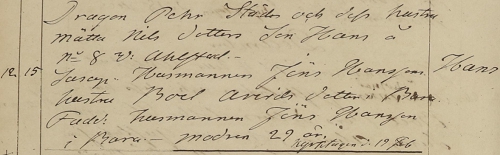 Dragon Pehr Städts och dess hustru
mätta Nils Dotters Son Hans å
No 8 vi Ahlstad.
12. 15 Suscep. Husmannen Jöns Hanssons Hans
hustru Boel Arvids Dotter i Bara
Fadd. husmannen Jöns Hansson
i Bara — modren 29 år.
Kyrktagen d. 19 Feb